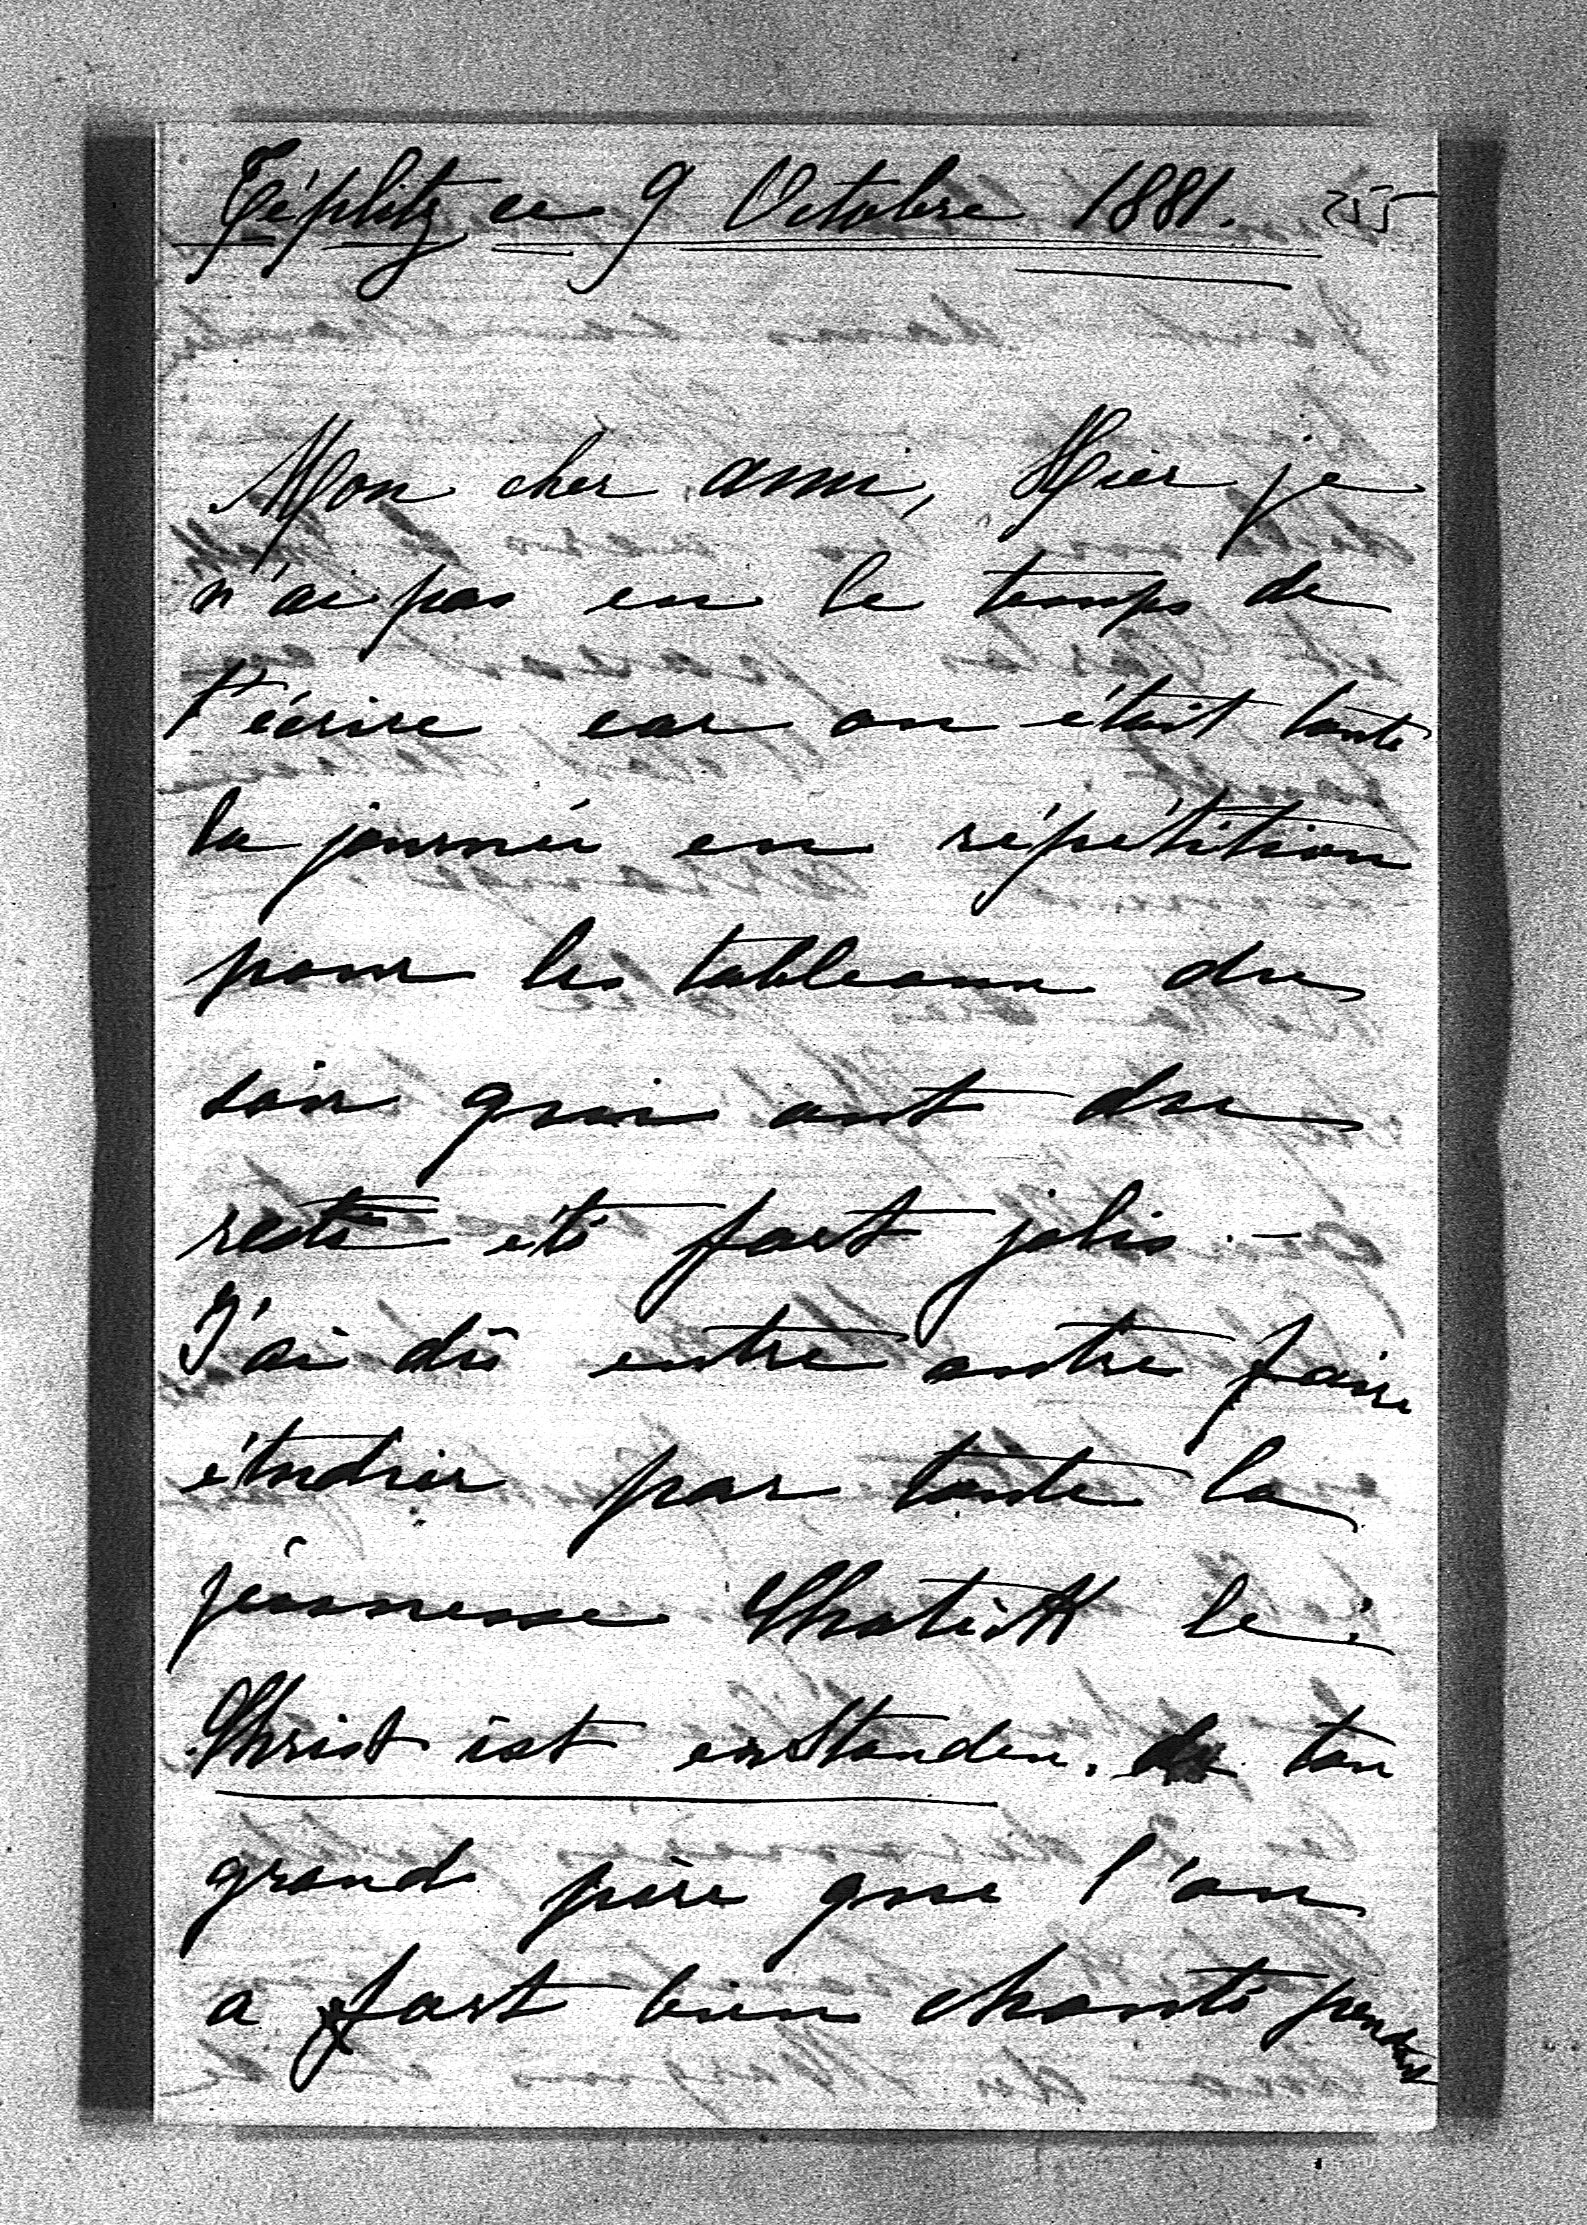 Téplitz ce 9 Octobre 1881. 255
Mon cher ami, Hier je
n'ai pas eu le temps de
t'écrire car on était toute
la journée en répétition
pour les tableaux du
soir qui ont du
reste été fort jolis. –
J'ai dû entre autre faire
étudier par toute la
jeunesse Chotek le:
Christ ist erstanden. de ton
grand père que l'on
a fort bien chanté pendant